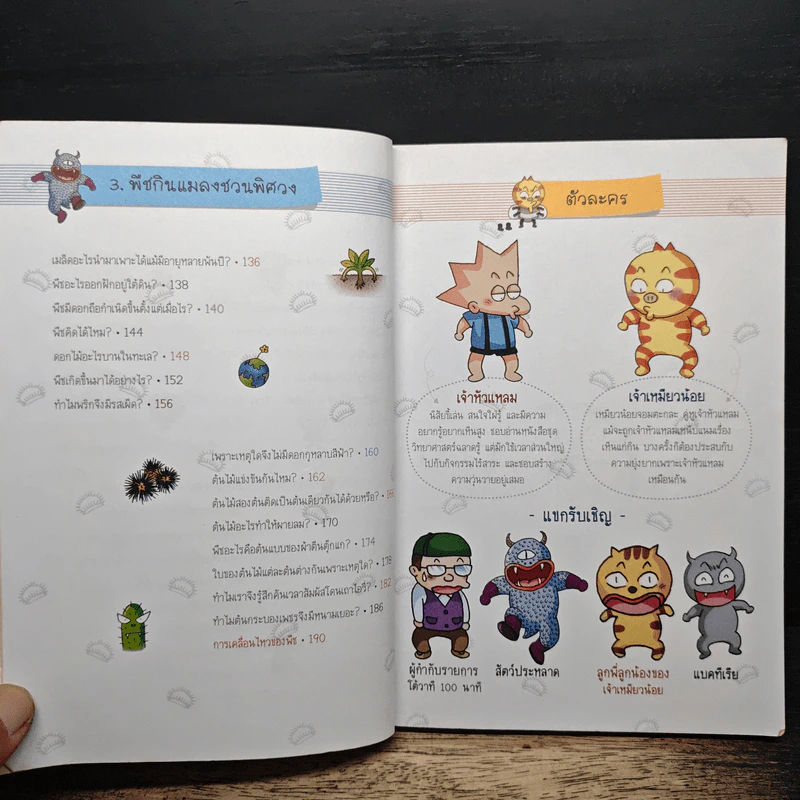 3. พืชกินแมลงชวนพิศวง
เมล็ดอะไรนำมาเพาะได้แม้มีอายุหลายพันปี? • 136
พืชอะไรออกฝักอยู่ใต้ดิน? • 138
พืชมีดอกถือกำเนิดขึ้นตั้งแต่เมื่อไร? • 140
พืชคิดได้ไหม? • 144
ดอกไม้อะไรบานในทะเล? • 148
พืชเกิดขึ้นมาได้อย่างไร? • 152
ทำไมพริกจึงมีรสเผ็ด? • 156
เพราะเหตุใดจึงไม่มีดอกกุหลาบสีฟ้า? • 160
ต้นไม้แข่งขันกันไหม? • 162
ต้นไม้สองต้นติดเป็นต้นเดียวกันได้ด้วยหรือ? •
ต้นไม้อะไรทำให้ผายลม? • 170
พืชอะไรคือต้นแบบของผ้าตีนตุ๊กแก? • 174
ใบของต้นไม้แต่ละต้นต่างกันเพราะเหตุใด? • 178
ทำไมเราจึงรู้สึกคันเวลาสัมผัสโดนเถาไอวี? • 182
ทำไมต้นกระบองเพชรจึงมีหนามเยอะ? • 186
การเคลื่อนไหวของพืช • 190
ตัวละคร
เจ้าหัวแหลม
นิสัยขี้เล่น สนใจใฝ่รู้ และมีความ
อยากรู้อยากเห็นสูง ชอบอ่านหนังสือชุด
วิทยาศาสตร์ฉลาดรู้ แต่มักใช้เวลาส่วนใหญ่
ไปกับกิจกรรมไร้สาระ และชอบสร้าง
ความวุ่นวายอยู่เสมอ
เจ้าเหมียวน้อย
เหมียวน้อยจอมตะกละ คู่หูเจ้าหัวแหลม
แม้จะถูกเจ้าหัวแหลมเหน็บแนมเรื่อง
เห็นแก่กิน บางครั้งก็ต้องประสบกับ
ความยุ่งยากเพราะเจ้าหัวแหลม
เหมือนกัน
- แขกรับเชิญ -
ผู้กำกับรายการ
โต้วาที 100 นาที
สัตว์ประหลาด
ลูกพี่ลูกน้องของ
เจ้าเหมียวน้อย
แบคทีเรีย